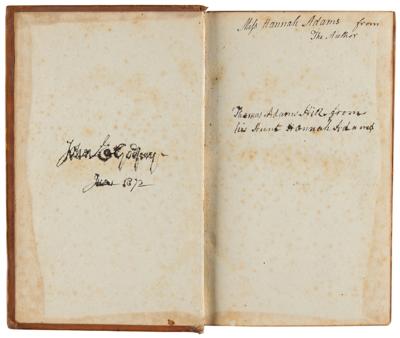 John
June 1872
Miss Hannah Adams from
The Author
Thomas Adams Hill from
his Aunt Hannah Adams